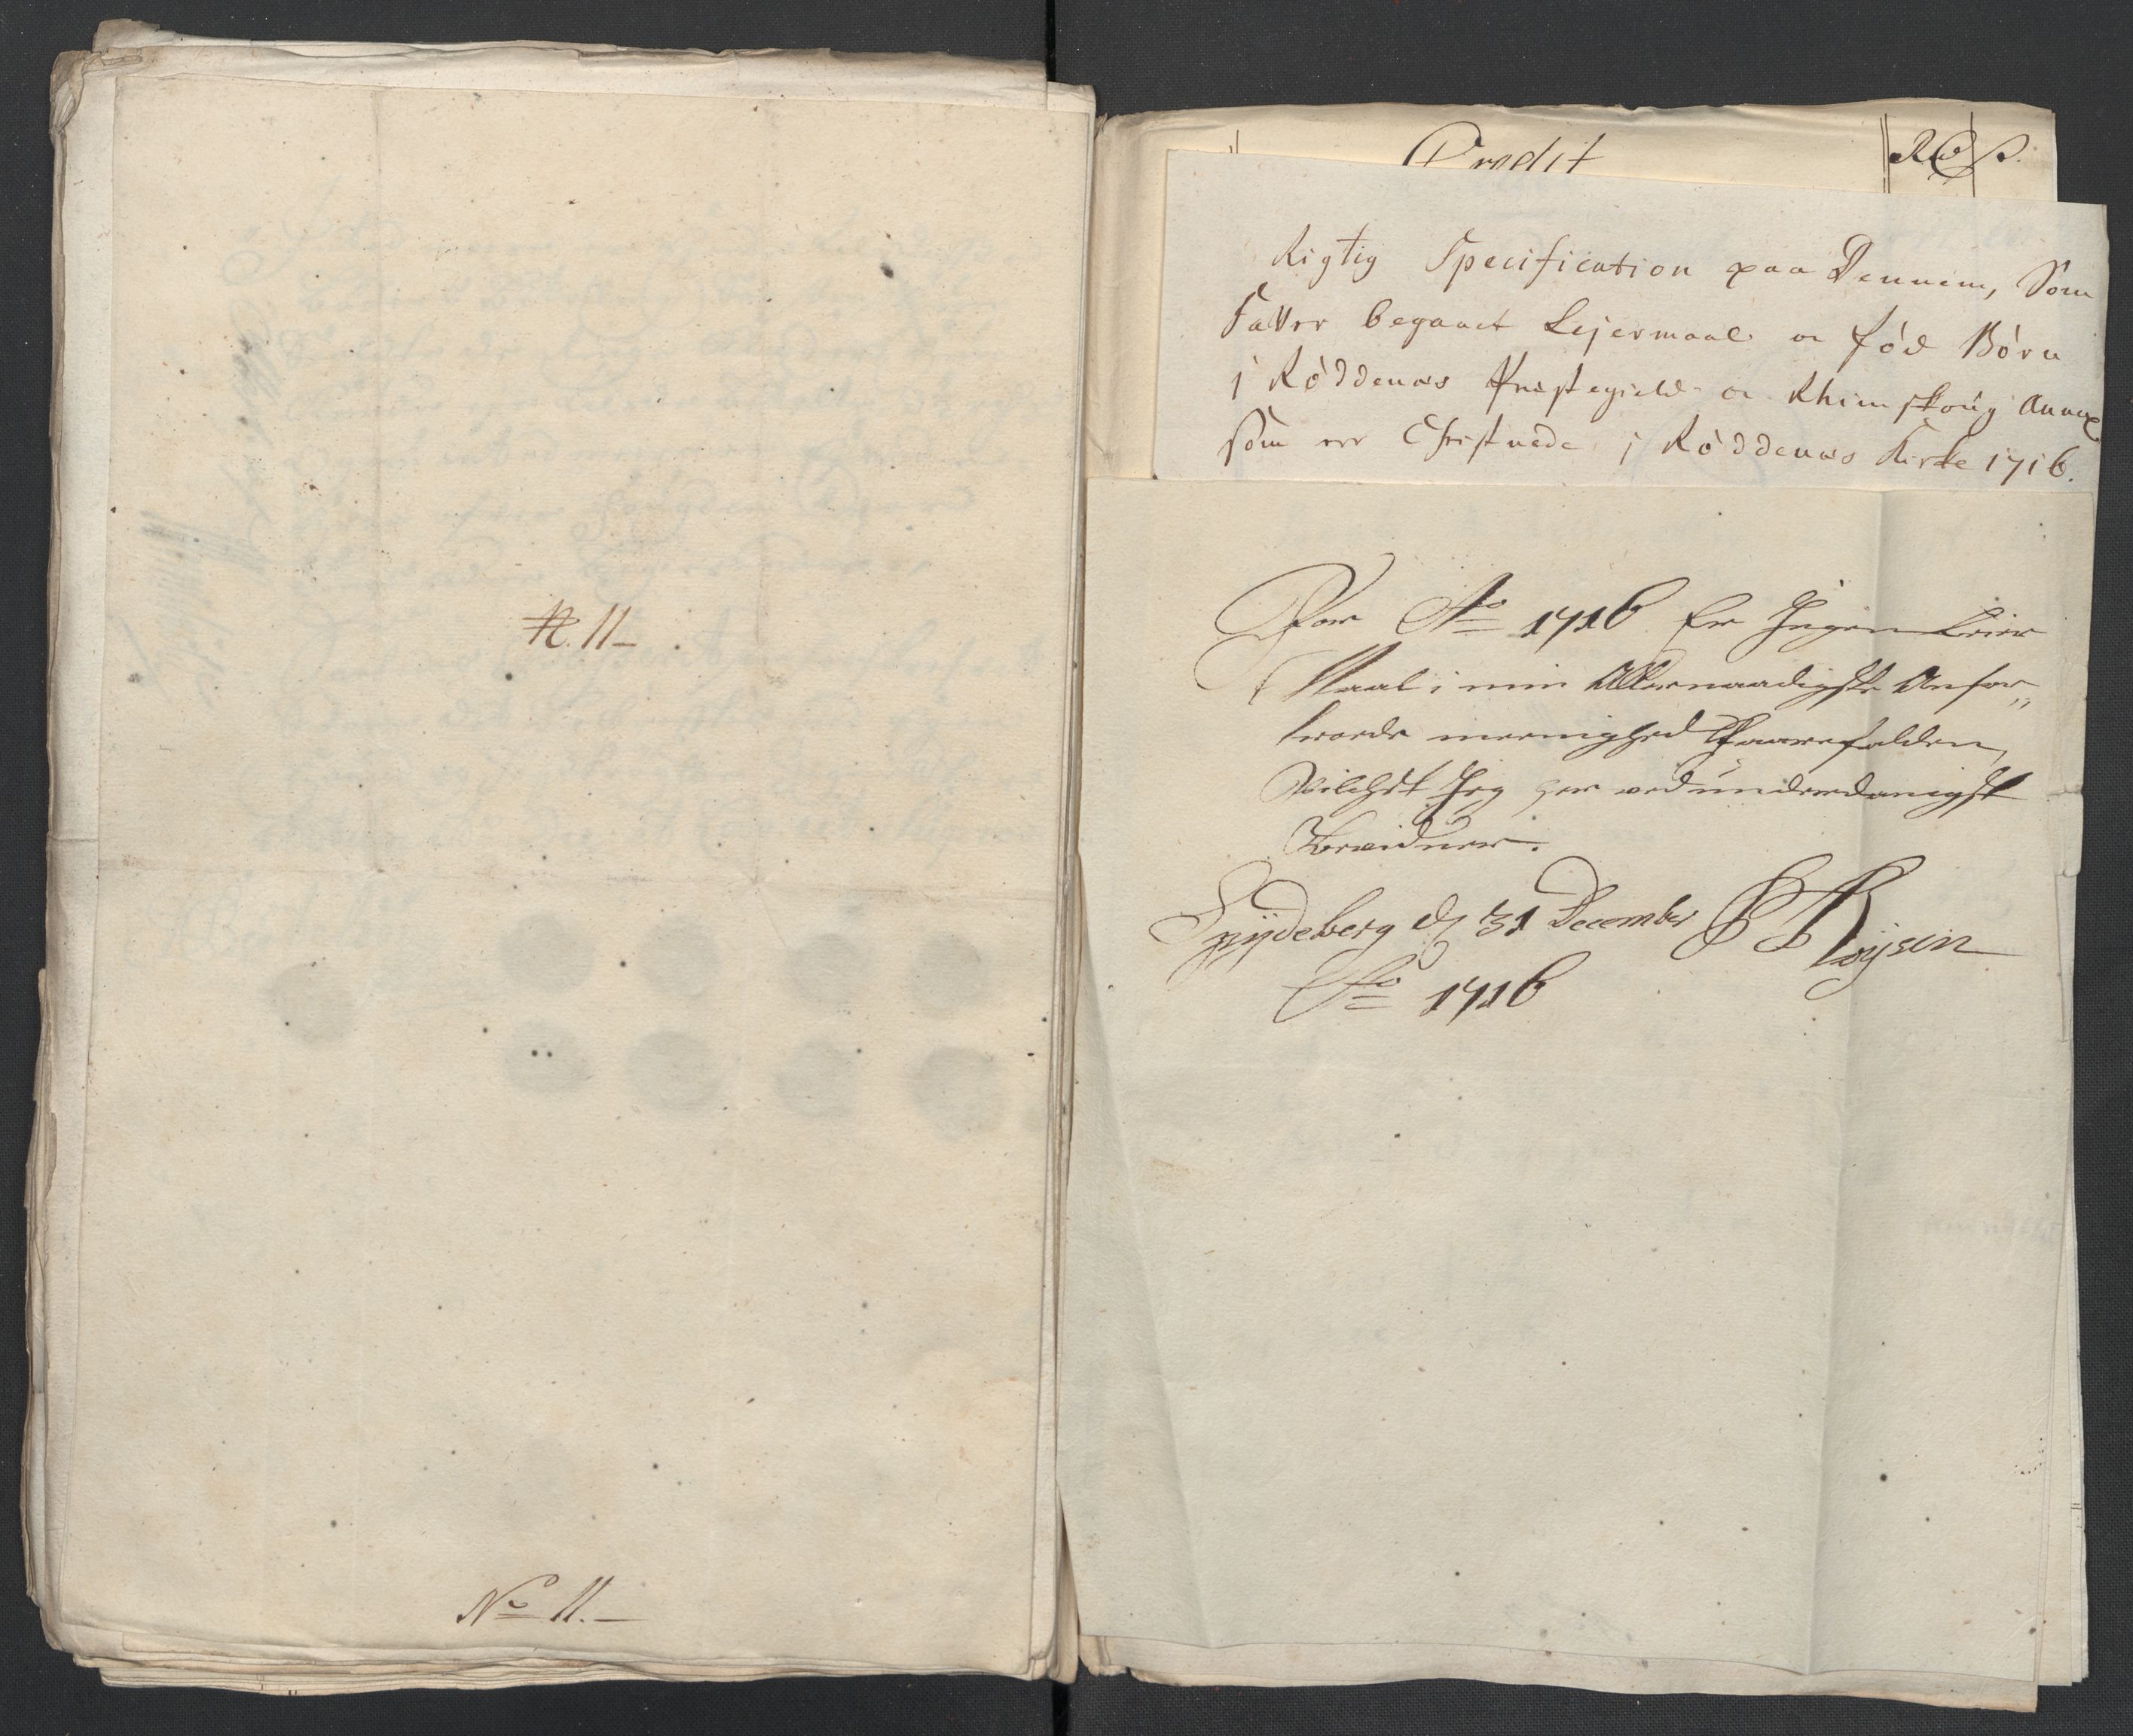 N. 11-
No 11.-
Credit
Rigtig Specification paa Dennem, Som
hafver begaaet Lejermaal oc fød Børn
i Røddenæs Præstegield oc Rhimskoug Annex
som ere Christnede i Røddenæs Kirke 1716.
For Ao 1716 Er Ingen Leier
Maal i min Allernaadigste Anfor„
troede meenighed
Hvilchet Jeg her ved underdanigst
Bevidner.
Spydeberg d 31 December Røyem
Ao 1716